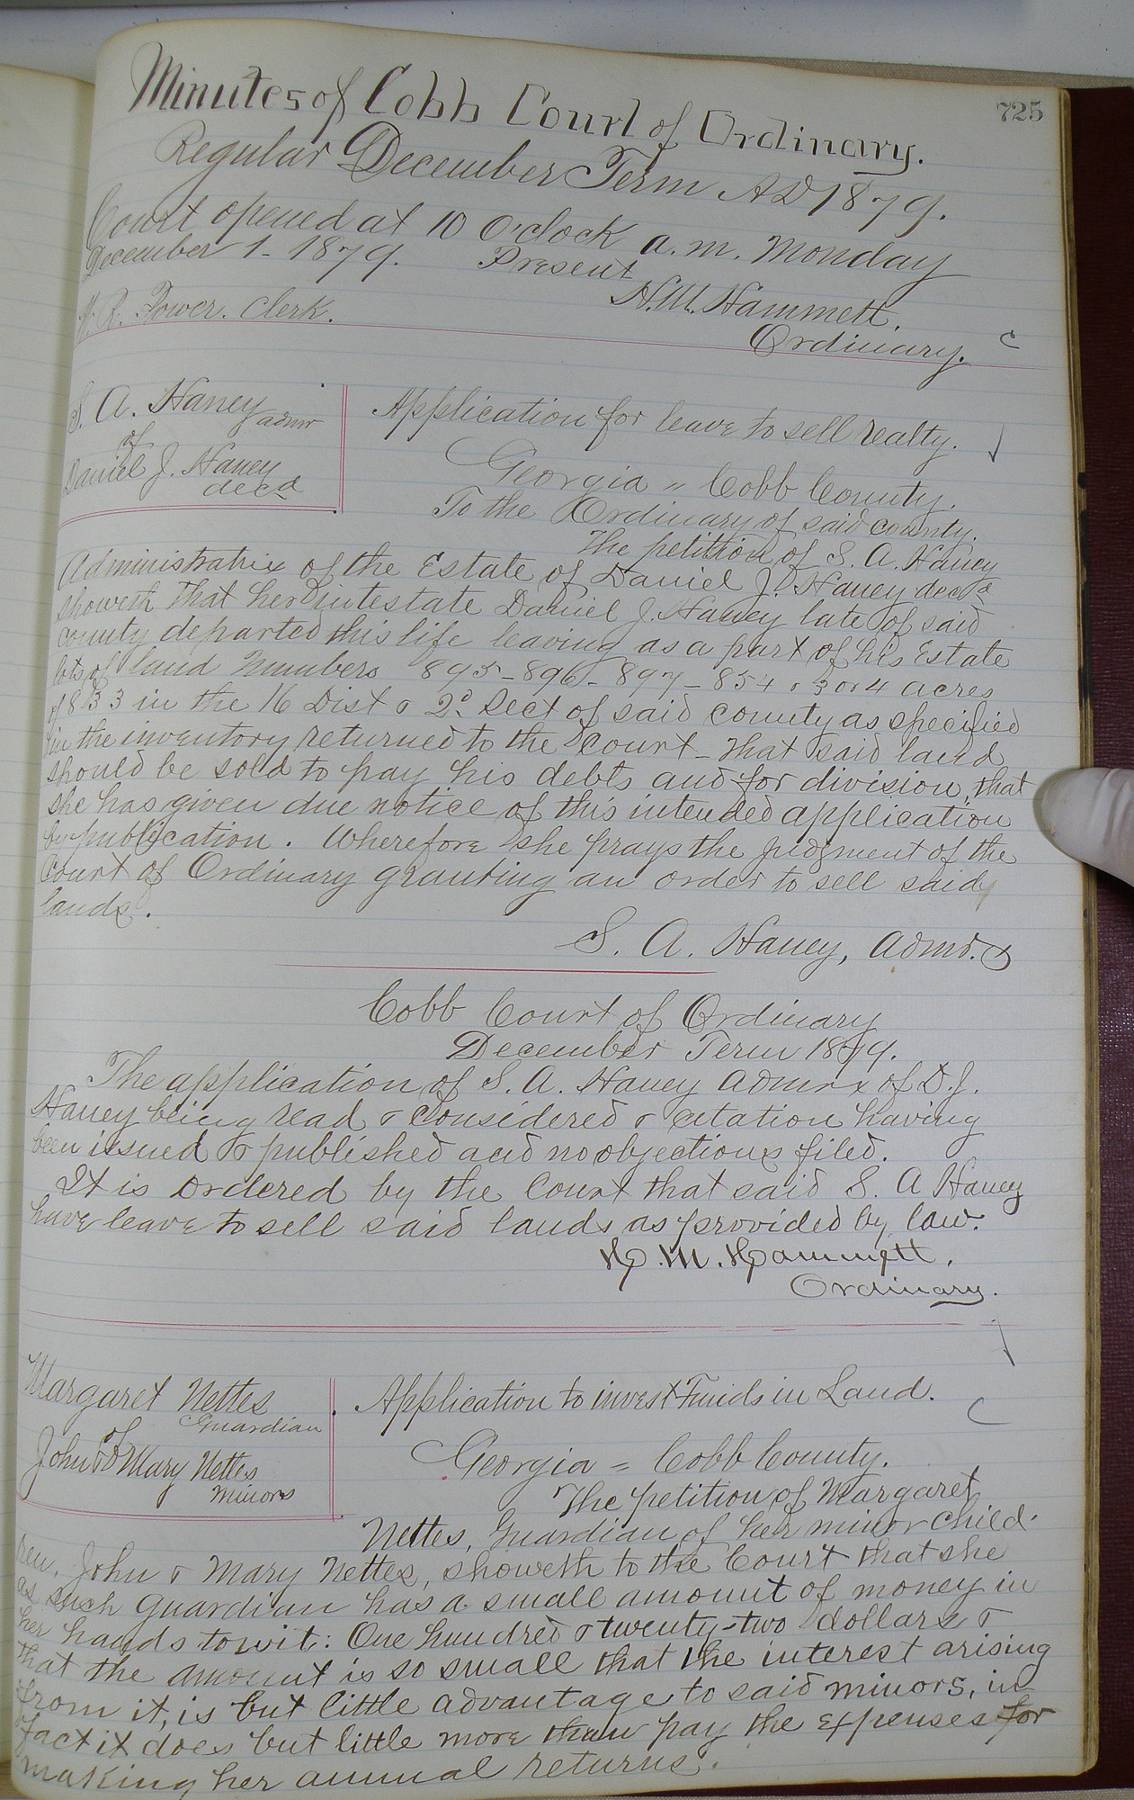 725
Minutes of Cobb Court of Ordinary.
Regular December Term AD 1879.
Court opened at 10 O'clock a.m. Monday
December 1 - 1879. Present
H.M. Hammett,
Ordinary. C
R. Power. Clerk.
S. A. Haney admr
of
Daniel J. Haney
decd
Application for leave to sell realty.
Georgia = Cobb County.
To the Ordinary of said county.
The petition of S. A. Haney
Administratrix of the Estate of Daniel J. Haney decd
showeth that her intestate Daniel J. Haney late of said
county departed this life leaving as a part of his Estate
lots of land Numbers 895 - 896 - 897 - 854 & 3 or 4 acres
of 833 in the 16 Dist & 2d Sect of said county as specified
in the inventory returned to the Court - That said land
should be sold to pay his debts and for division, that
she has given due notice of this intended application
by publication. Wherefore she prays the judgment of the
Court of Ordinary granting an order to sell said
lands.
S. A. Haney, Admr.x
Cobb Court of Ordinary
December Term 1879.
The application of S. A. Haney Admrx of D. J.
Haney being read & considered & citation having
been issued & published and no objections filed.
It is ordered by the Court that said S. A Haney
have leave to sell said lands as provided by law.
H. M. Hammett,
Ordinary.
Margaret Nettes
Guardian
of
John & Mary Nettes
minors
Application to invest Funds in Land. C
Georgia = Cobb County.
The petition of Margaret
Nettes, Guardian of her minor child-
ren, John & Mary Nettes, showeth to the Court that she
as such guardian has a small amount of money in
her hands towit: One hundred & twenty-two dollars &
that the amount is so small that the interest arising
from it, is but little advantage to said minors, in
fact it does but little more than pay the expenses for
making her annual returns.